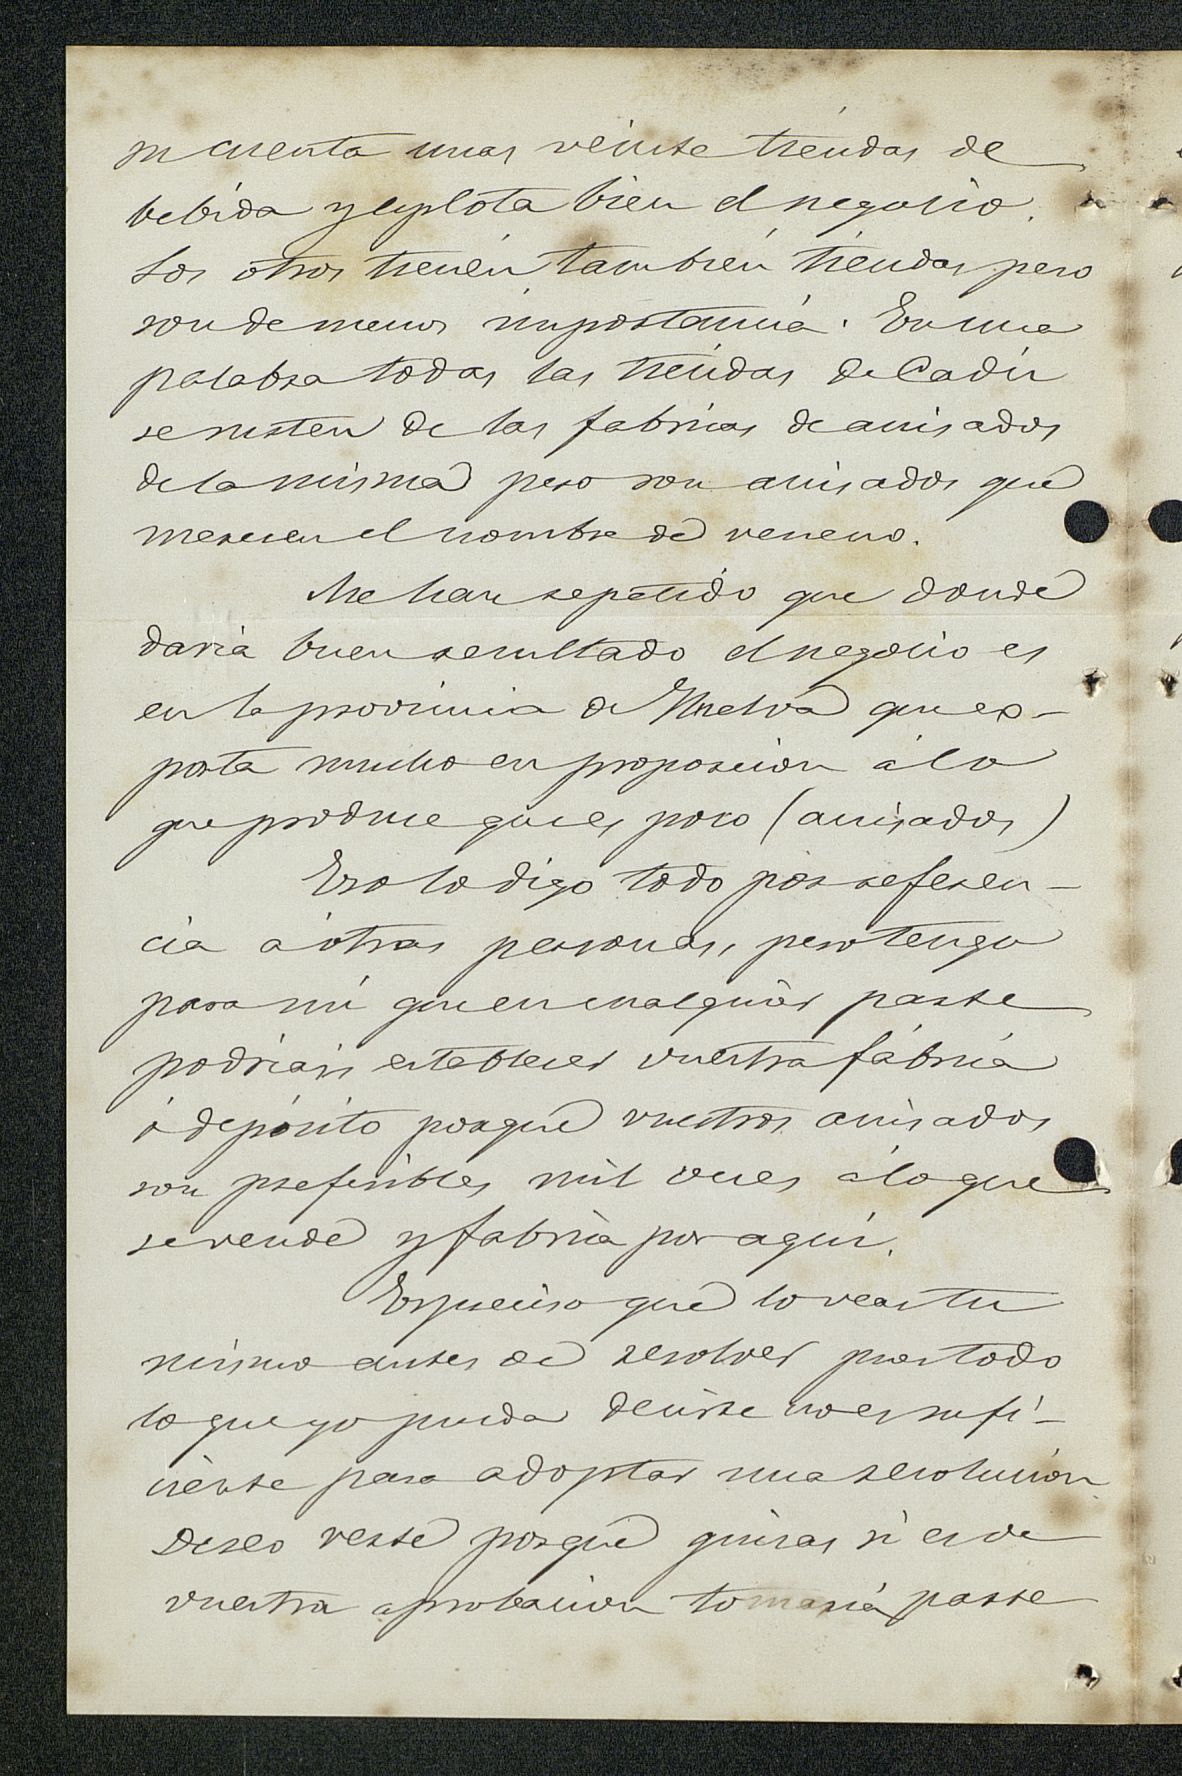 su cuenta unas veinte tiendas de
bebida y esplota bien el negocio.
Los otros tienen tambien tiendas pero
son de menos importancia. En una
palabra todas las tiendas de Cadiz
se surten de las fabricas de anisados
de la misma pero son anisados que
merecen el nombre de veneno.
Me han repetido que donde
daria buen resultado el negocio es
en la provincia de Huelva que es-
porta mucho en proporcion á lo
que produce que es poco (anisados)
Eso lo digo todo por referen-
cia á otras personas, pero tengo
para mi que en cualquier parte
podriais establecer vuestra fábrica
ó depósito porque vuestros anisados
son preferibles mil veces á lo que
se vende y fabrica por aqui.
Es preciso que lo veas tu
mismo antes de resolver pues todo
lo que yo pueda decirte no es sufi-
ciente para adoptar una resolucion.
Deseo verte porque quizas si es de
vuestra aprobacion tomaria parte